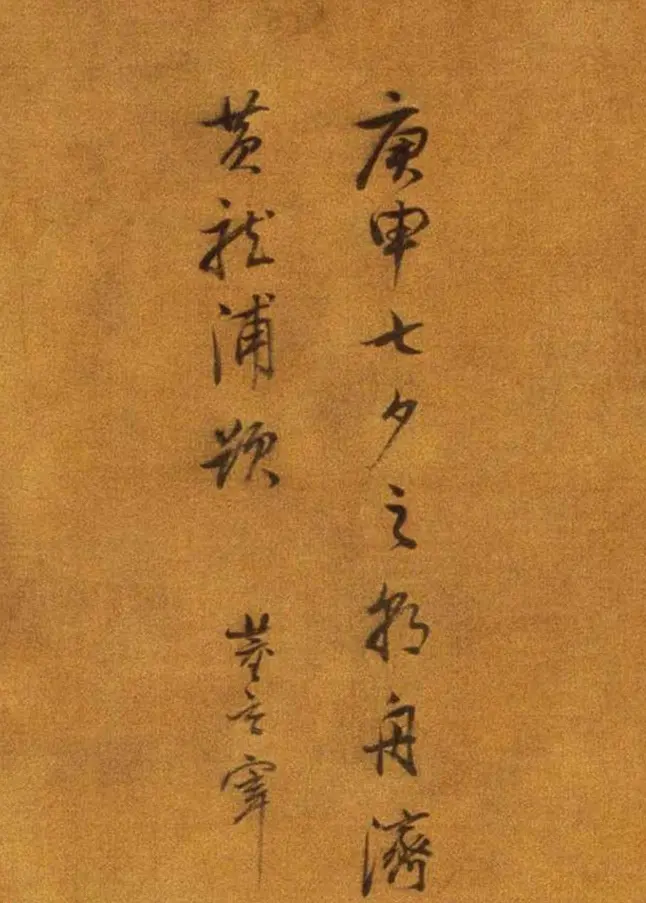 庚申七夕之朝舟濟
黄龍浦題
董玄宰